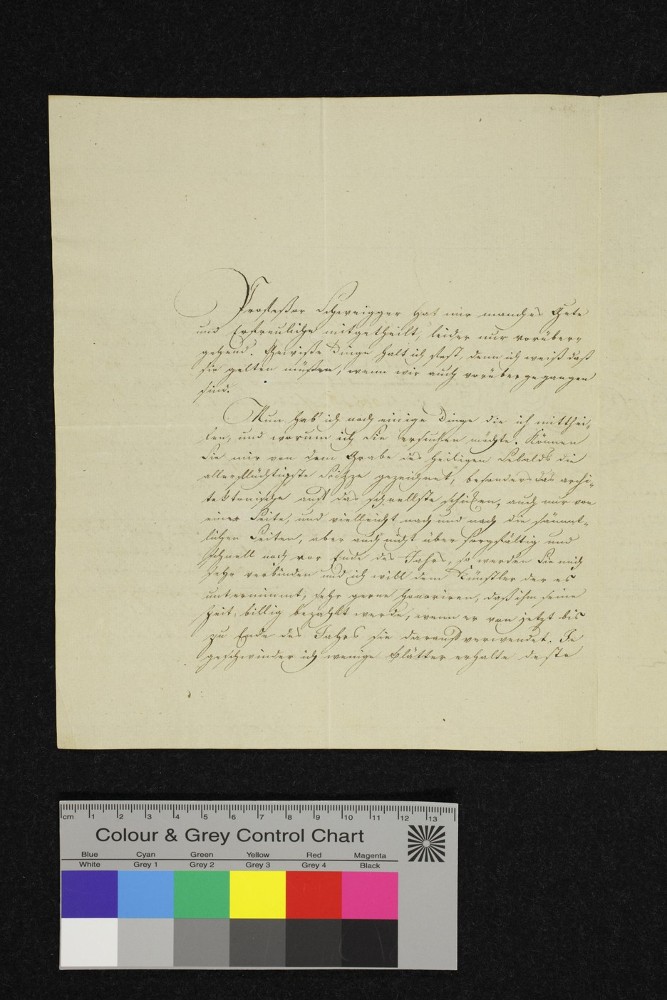 Professor Schweigger hat mir manches Gute
und Erfreuliche mitgetheilt, leider nur vorüber-
gehend. Gewisse Dinge halt ich fest, denn ich weiß daß
sie gelten müssen, wenn wir auch vorübergegangen
sind.
Nun hab' ich noch einige Dinge die ich mitthei-
len, und warum ich Sie ersuchen möchte. Können
Sie mir von dem Grabe des heiligen Sebalds die
allerflüchtigste Skizze gezeichnet, besonders das archi-
tektonische auf das schnellste schicken, auch nur von
einer Seite, und vielleicht nach und nach die sämmt-
lichen Seiten, aber auch nicht über sorgfältig und
schnell noch vor Ende des Jahrs, so werden Sie mich
sehr verbinden und ich will dem Künstler der es
unternimmt, sehr gerne honoriren, daß ihm seine
Zeit, billig bezahlt werde, wenn er von jetzt bis
zu Ende des Jahrs sie darauf verwendet. Je
geschwinder ich wenige Blätter erhalte deste
cm 1 2 3 4 5 6 7 8 9 10 11 12 13
Colour & Grey Control Chart
Blue Cyan Green Yellow Red Magenta
White Grey 1 Grey 2 Grey 3 Grey 4 Black